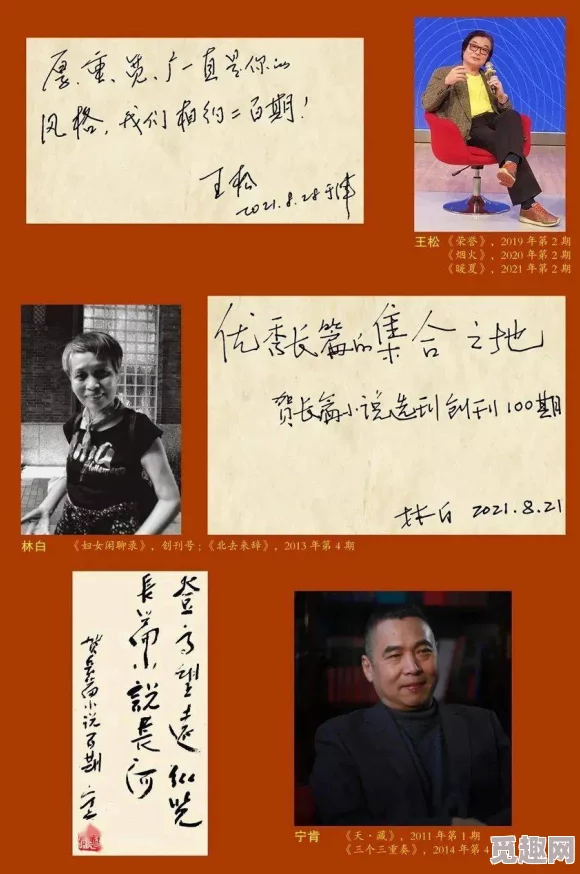 厚、重、宽、广一直是你的
风格,我们相约二百期!
王松
2021.8.28 于津
王松 《荣誉》,2019 年第 2 期
《烟火》,2020 年第 2 期
《暖夏》,2021 年第 2 期
优秀长篇的集合之地
贺长篇小说选刊创刊100期
林白 2021.8.21
林白 《妇女闲聊录》,创刊号;《北去来辞》,2013 年第 4 期
登高望远纵览
長篇小說長河
贺長篇小说百期
宁肯 《天·藏》,2011 年第 1 期
《三个三重奏》,2014 年第 4
觅趣网